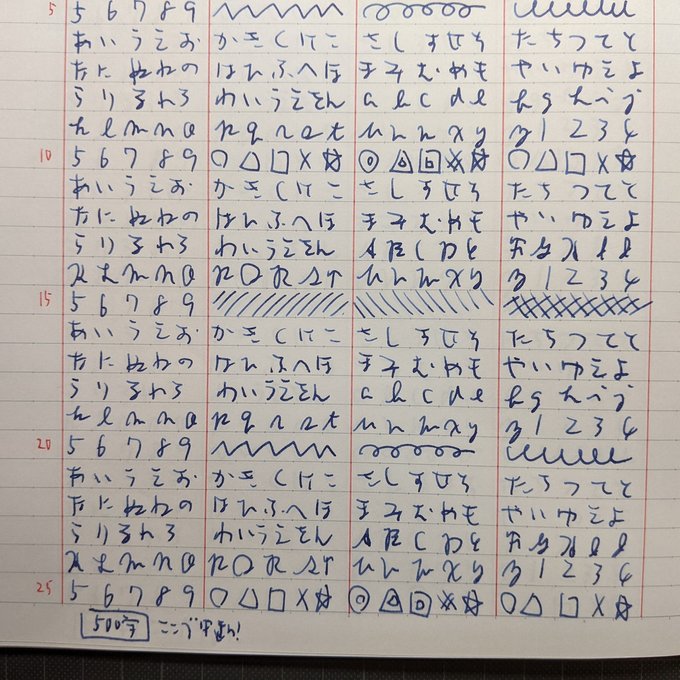 5 5 6 7 8 9
あいうえお かきくけこ さしすせそ たちつてと
なにぬねの はひふへほ まみむめも やいゆえよ
らりるれろ わいうえをん a b c d e f g h i j
k l m n o p q r s t u v w x y z 1 2 3 4
10 5 6 7 8 9 ○△□×☆ ○△□×☆
あいうえお かきくけこ さしすせそ たちつてと
なにぬねの はひふへほ まみむめも やいゆえよ
らりるれろ わいうえをん A B C D E F G H I J
K L M N O P Q R S T U V W X Y Z 1 2 3 4
15 5 6 7 8 9
あいうえお かきくけこ さしすせそ たちつてと
なにぬねの はひふへほ まみむめも やいゆえよ
らりるれろ わいうえをん a b c d e f g h i j
k l m n o p q r s t u v w x y z 1 2 3 4
20 5 6 7 8 9
あいうえお かきくけこ さしすせそ たちつてと
なにぬねの はひふへほ まみむめも やいゆえよ
らりるれろ わいうえをん A B C D E F G H I J
K L M N O P Q R S T U V W X Y Z 1 2 3 4
25 5 6 7 8 9 ○△□×☆ ○△□×☆
500字 ここまで